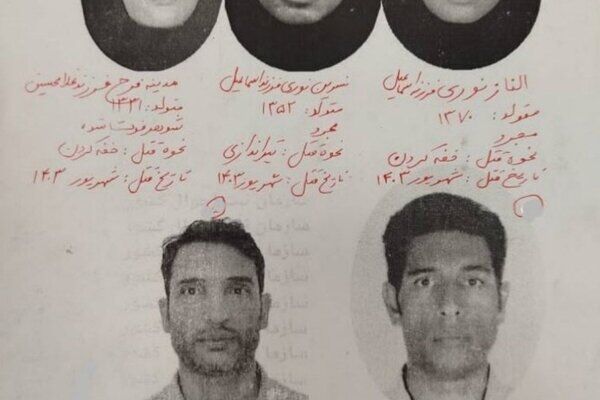 الناز نوری فرزند اسماعیل
متولد: ۱۳۷۰
مجرد
نحوه قتل: خفه کردن
تاریخ قتل: شهریور ۱۴۰۳
نسرین نوری فرزند اسماعیل
متولد: ۱۳۵۲
مجرد
نحوه قتل: تیراندازی
تاریخ قتل: شهریور ۱۴۰۳
مدینه فرخ فرزند غلامحسین
متولد:
شوهر فوت شده
نحوه قتل: خفه کردن
تاریخ قتل: شهریور ۱۴۰۳